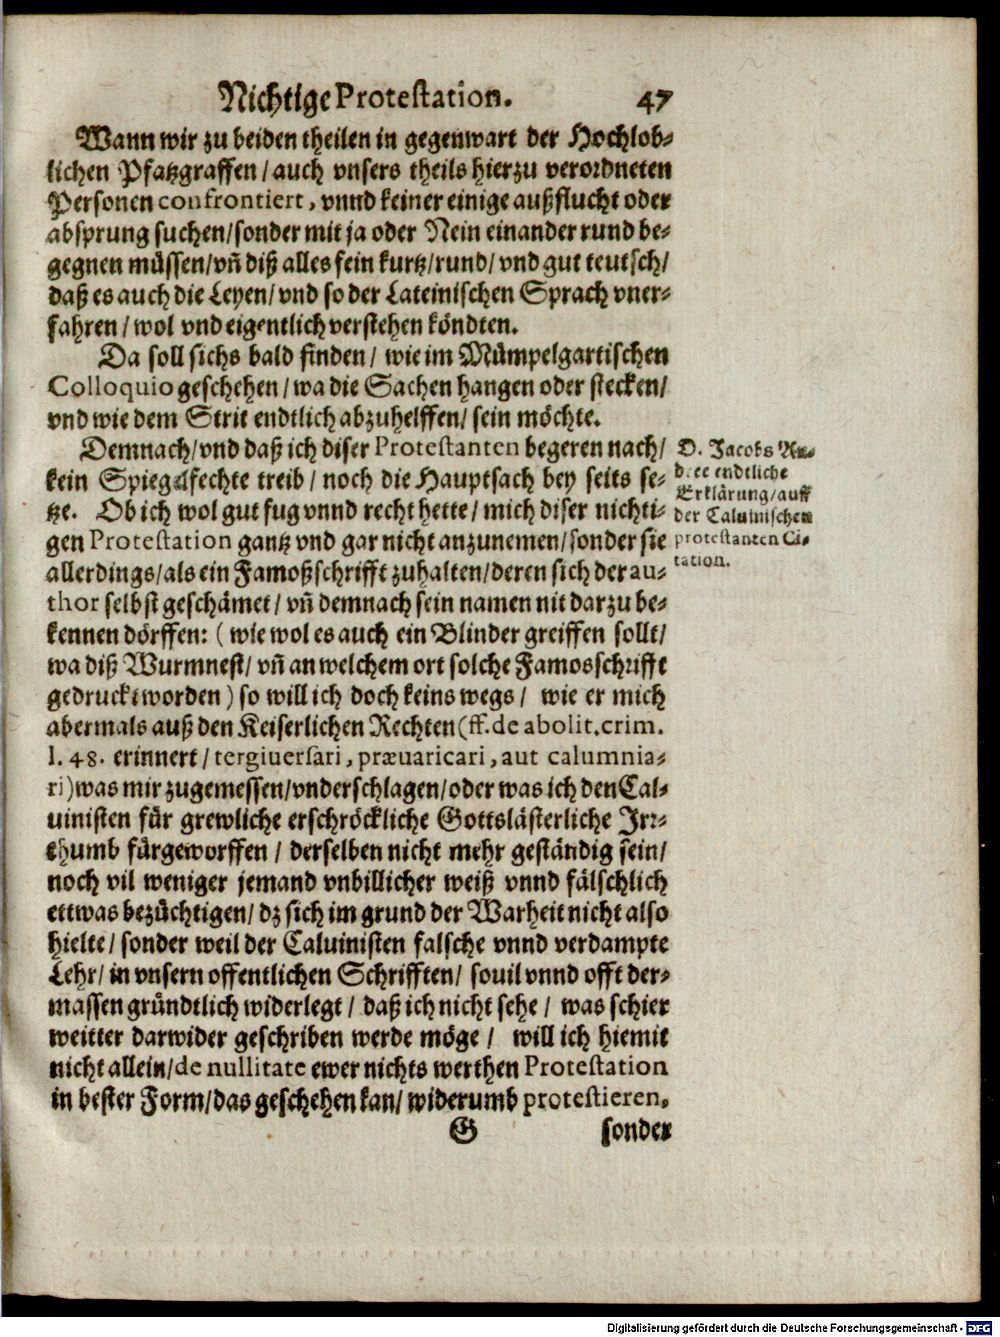 Nichtige Protestation. 47
Wann wir zu beiden theilen in gegenwart der Hochlob-
lichen Pfatzgraffen / auch vnsers theils hierzu verordneten
Personen confrontiert, vnnd keiner einige außflucht oder
absprung suchen/sonder mit ja oder Nein einander rund be-
gegnen müssen/vñ diß alles fein kurtz/rund/ vnd gut teutsch/
daß es auch die Leyen/ vnd so der Lateinischen Sprach vner-
fahren / wol vnd eigentlich verstehen köndten.
Da soll sichs bald finden / wie im Mümpelgartischen
Colloquio geschehen / wa die Sachen hangen oder stecken/
vnd wie dem Strit endtlich abzuhelffen/ sein möchte.
Demnach/vnd daß ich diser Protestanten begeren nach/
kein Spiegelfechte treib / noch die Hauptsach bey seits se-
tze. Ob ich wol gut fug vnnd recht hette / mich diser nichti-
gen Protestation gantz vnd gar nicht anzunemen/sonder sie
allerdings/als ein Famoßschrifft zuhalten/deren sich der au-
thor selbst geschämet / vñ demnach sein namen nit darzu be-
kennen dörffen: ( wie wol es auch ein Blinder greiffen sollt/
wa diß Wurmnest/ vñ an welchem ort solche Famosschrifft
gedruckt worden ) so will ich doch keins wegs / wie er mich
abermals auß den Keiserlichen Rechten (ff. de abolit. crim.
l. 48. erinnert / tergiuersari, præuaricari, aut calumnia-
ri) was mir zugemessen/vnderschlagen/oder was ich den Cal-
uinisten für grewliche erschröckliche Gottslästerliche Irr-
thumb fürgeworffen / derselben nicht mehr geständig sein/
noch vil weniger jemand vnbillicher weiß vnnd fälschlich
ettwas bezüchtigen/ dz sich im grund der Warheit nicht also
hielte / sonder weil der Caluinisten falsche vnnd verdampte
Lehr/ in vnsern offentlichen Schrifften/ souil vnnd offt der-
massen gründtlich widerlegt / daß ich nicht sehe / was schier
weitter darwider geschriben werde möge / will ich hiemit
nicht allein/de nullitate ewer nichts werthen Protestation
in bester Form/das geschehen kan/ widerumb protestieren,
G sonder
D. Jacobs An-
dree endtliche
Erklärung/auff
der Caluinischen
protestanten Ci-
tation.
Digitalisierung gefördert durch die Deutsche Forschungsgemeinschaft - DFG